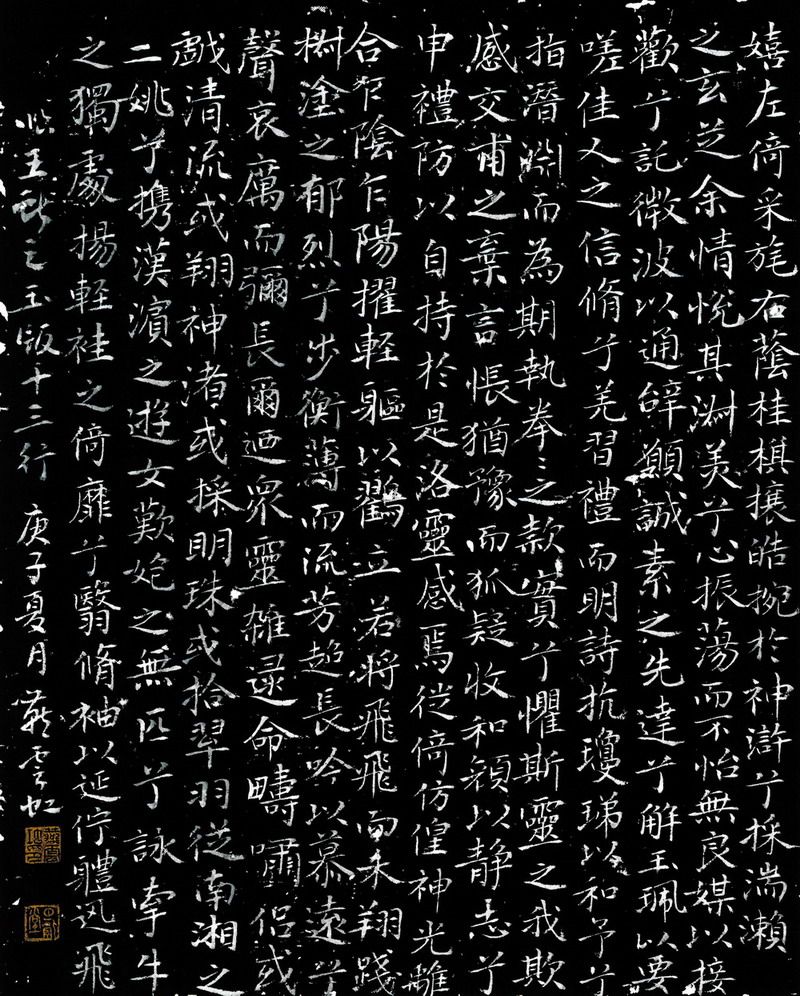 嬉左倚采旄右蔭桂棋攘皓捥於神滸兮採湍瀨
之玄芝余情悅其淵美兮心振蕩而不怡無良媒以接
歡兮託微波以通辭願誠素之先達兮解玉珮以要
嗟佳人之信脩兮羌習禮而明詩抗瓊珶以和予兮
指潛淵而為期執拳〻之款實兮懼斯靈之我欺
感交甫之棄言悵猶豫而狐疑收和顏以静志兮
申禮防以自持於是洛靈感焉從倚仿偟神光離
合乍陰乍陽擢輕軀以鶴立若將飛飛而未翔踐
椒塗之郁烈兮步衡薄而流芳超長吟以慕遠兮
聲哀厲而彌長爾迺衆靈雜遝命疇嘯侶或
戯清流或翔神渚或採明珠或拾翠羽從南湘之
二姚兮携漢濱之遊女歎炧之無匹兮詠牽牛
之獨處揚輕袿之倚靡兮翳脩袖以延佇軆迅飛
臨王獻之玉版十三行 庚子夏月 雲虹